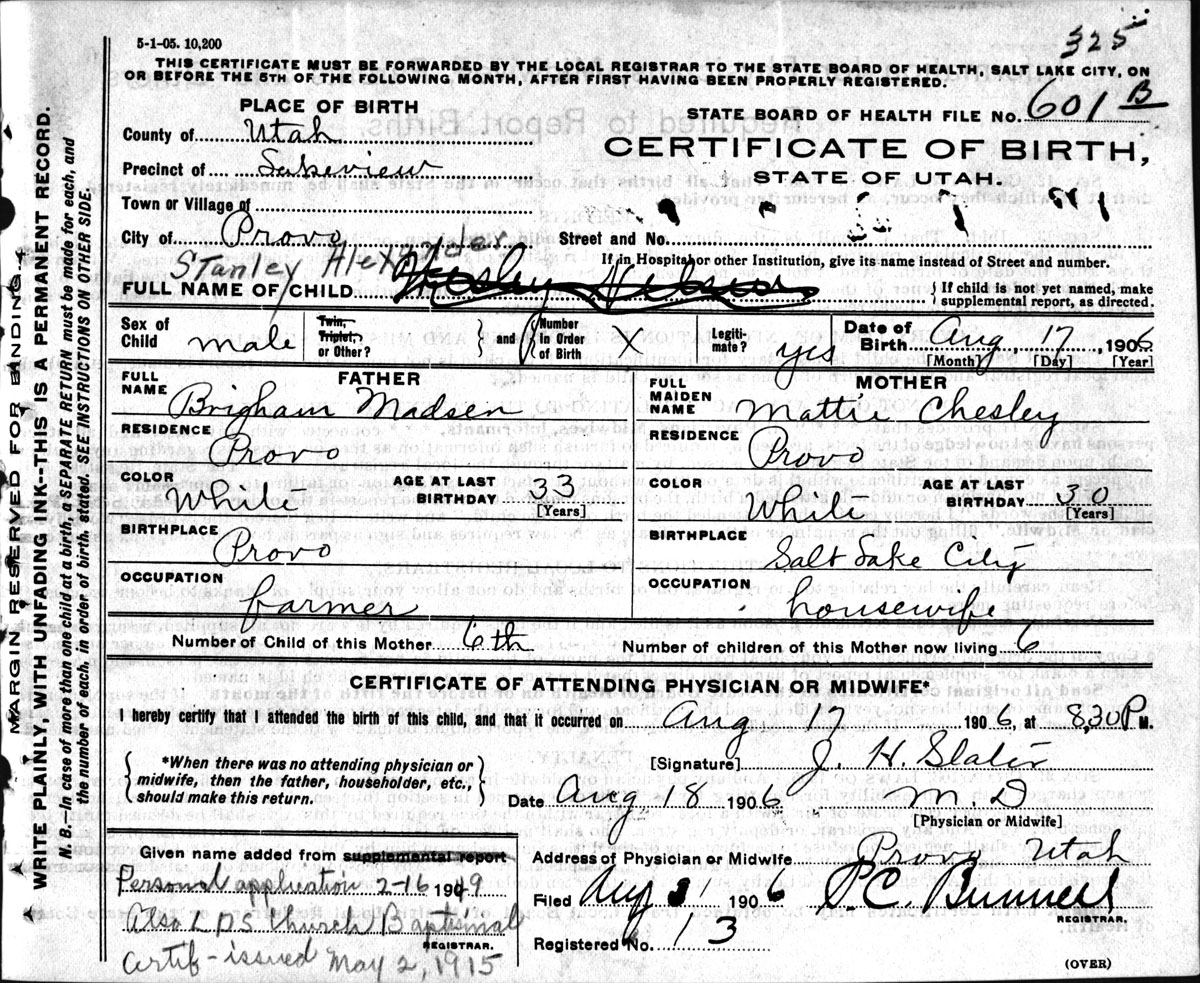 325
5-1-05. 10,200
THIS CERTIFICATE MUST BE FORWARDED BY THE LOCAL REGISTRAR TO THE STATE BOARD OF HEALTH, SALT LAKE CITY, ON
OR BEFORE THE 5TH OF THE FOLLOWING MONTH, AFTER FIRST HAVING BEEN PROPERLY REGISTERED.
PLACE OF BIRTH
STATE BOARD OF HEALTH FILE No. 601 B
County of Utah
CERTIFICATE OF BIRTH,
STATE OF UTAH.
Precinct of Lakeview
Town or Village of
City of Provo
Street and No.
If in Hospital or other Institution, give its name instead of Street and number.
Stanley Alexander
FULL NAME OF CHILD
If child is not yet named, make
supplemental report, as directed.
Sex of Child male
Twin, Triplet, or Other?
and
Number in Order of Birth
Legiti-mate? yes
Date of Birth Aug 17, 1906
[Month] [Day] [Year]
FATHER
FULL NAME Brigham Madsen
RESIDENCE Provo
COLOR White
AGE AT LAST BIRTHDAY 33
[Years]
BIRTHPLACE Provo
OCCUPATION farmer
MOTHER
FULL MAIDEN NAME Mattie Chesley
RESIDENCE Provo
COLOR White
AGE AT LAST BIRTHDAY 30
[Years]
BIRTHPLACE Salt Lake City
OCCUPATION housewife
Number of Child of this Mother 6th
Number of children of this Mother now living 6
CERTIFICATE OF ATTENDING PHYSICIAN OR MIDWIFE*
I hereby certify that I attended the birth of this child, and that it occurred on Aug 17 1906, at 8,30 P M.
*When there was no attending physician or
midwife, then the father, householder, etc.,
should make this return.
[Signature] J. H. Slater
Date Aug 18 1906
M. D
[Physician or Midwife]
Given name added from supplemental report
Personal application 2-16 1949
Also L D S Church Baptismal
REGISTRAR.
Certif - issued May 2, 1915
Address of Physician or Midwife Provo Utah
Filed Aug 31 1906
P. C. Bunnell
REGISTRAR.
Registered No. 13
(OVER)
MARGIN RESERVED FOR BINDING
WRITE PLAINLY, WITH UNFADING INK--THIS IS A PERMANENT RECORD.
N. B.--In case of more than one child at a birth, a SEPARATE RETURN must be made for each, and
the number of each, in order of birth, stated. SEE INSTRUCTIONS ON OTHER SIDE.